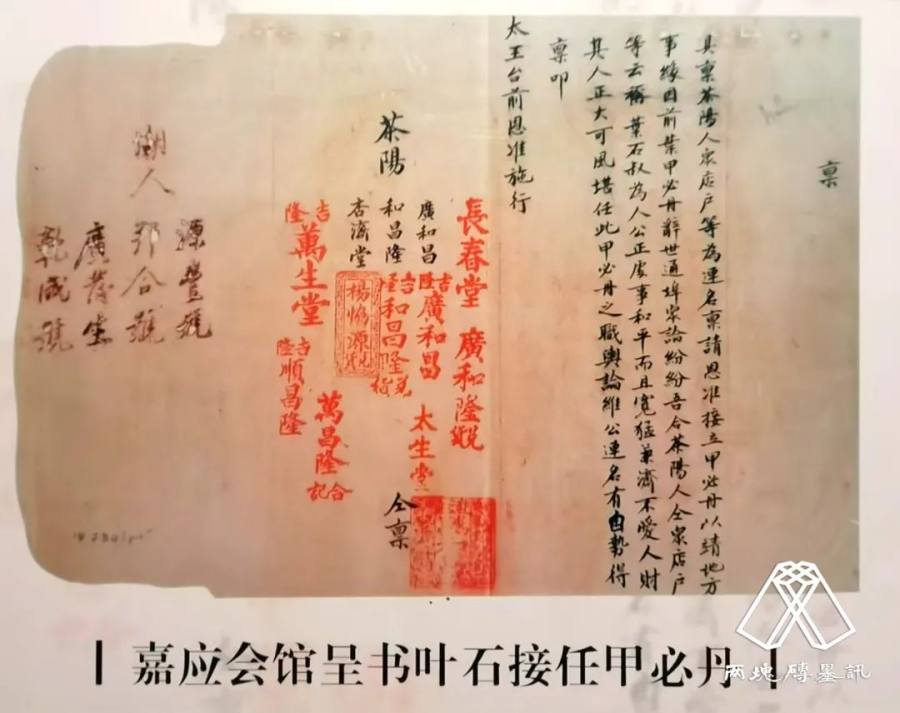 稟
具稟茶陽人眾店戶等為連名稟請恩准接立甲必丹以靖地方
事緣因前葉甲必丹辭世通埠眾論紛紛吾仝茶陽人仝眾店戶
等云稱葉石叔為人公正處事和平而且寬猛兼濟不愛人財
其人正大可風堪任此甲必丹之職輿論維公連名有由勢得
稟叩
太王台前恩准施行
長春堂 廣和隆號
廣和昌
吉隆廣和昌 太生堂
仝稟
茶陽
和昌隆
吉隆和昌隆
杏濟堂
萬昌隆
合記
吉隆萬生堂
吉隆順昌隆
源豐號
潮人
合號
廣
乾成
嘉应会馆呈书叶石接任甲必丹
两塊磚墨訊